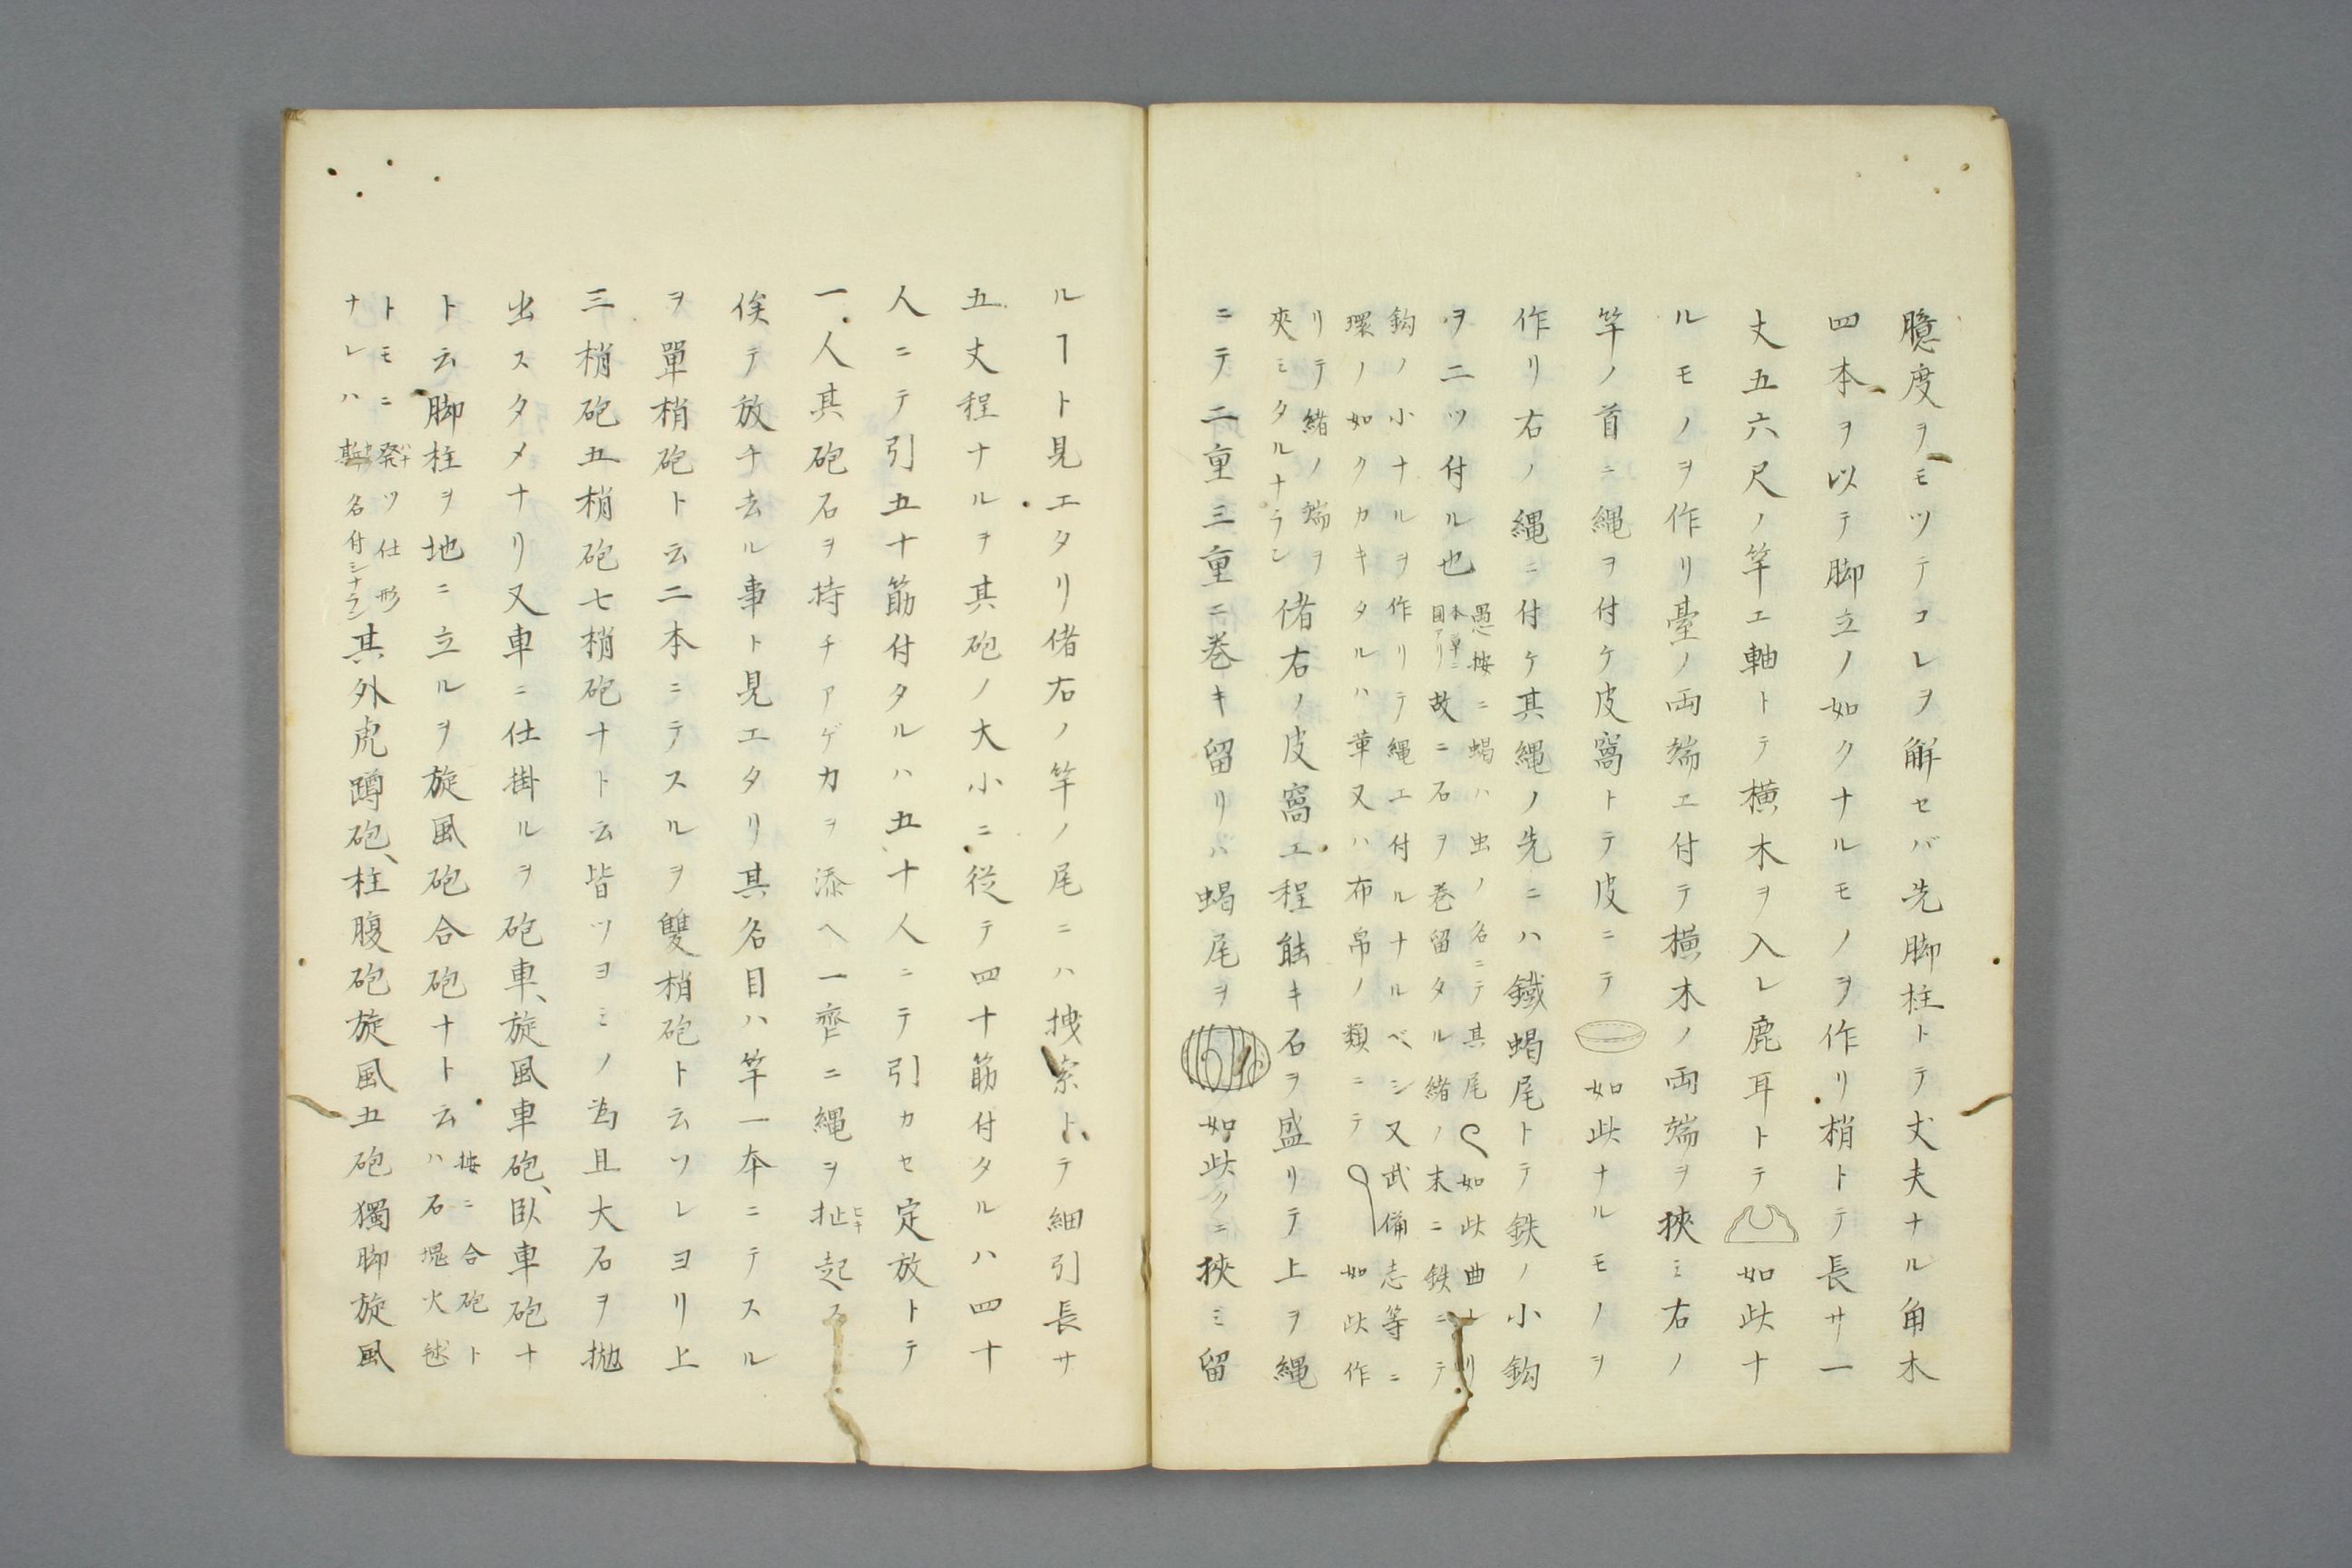 臆度ヲモツテコレヲ解セバ先脚柱トテ丈夫ナル角木
四本ヲ以テ脚立ノ如クナルモノヲ作リ梢トテ長サ一
丈五六尺ノ竿エ軸トテ横木ヲ入レ鹿耳トテ如此ナ
ルモノヲ作リ臺ノ両端エ付テ横木ノ両端ヲ挾ミ右ノ
竿ノ首ニ縄ヲ付ケ皮窩トテ皮ニテ如此ナルモノヲ
作リ右ノ縄ニ付ケ其縄ノ先ニハ鐵蝎尾トテ鉄ノ小鈎
ヲ二ツ付ル也
愚按ニ蝎ハ虫ノ名ニテ其尾如此曲レリ
本草ニ
圖アリ
故ニ石ヲ巻留タル緒ノ末ニ鉄ニテ
鈎ノ小ナルヲ作リテ縄エ付ルナルベシ又武備志等ニ
環ノ如クカキタルハ革又ハ布帛ノ類ニテ如此作
リテ緒ノ端ヲ
夾ミタルナラン
偖右ノ皮窩エ程能キ石ヲ盛リテ上ヲ縄
ニテ二重三重ニ巻キ留リハ蝎尾ヲ如此クニ挾ミ留
ルヿト見エタリ偖右ノ竿ノ尾ニハ拽索トテ細引長サ
五丈程ナルヲ其砲ノ大小ニ従テ四十筋付タルハ四十
人ニテ引五十筋付タルハ五十人ニテ引カセ定放トテ
一人其砲石ヲ持チアゲカヲ添ヘ一齊ニ縄ヲ扯起ス
ヒキ
俟テ放チ去ル事ト見エタリ其名目ハ竿一本ニテスル
ヲ單梢砲ト云二本ニテスルヲ雙梢砲ト云ソレヨリ上
三梢砲五梢砲七梢砲ナト云皆ツヨミノ為且大石ヲ拋
出スタメナリ又車ニ仕掛ルヲ砲車、旋風車砲、臥車砲ナ
ト云脚柱ヲ地ニ立ルヲ旋風砲合砲ナト云
按ニ合砲ト
ハ石塊火毬
トモニ発ツ仕形
ハナ
ナレハ斯名付シナラン
其外虎蹲砲、柱腹砲旋風五砲獨脚旋風